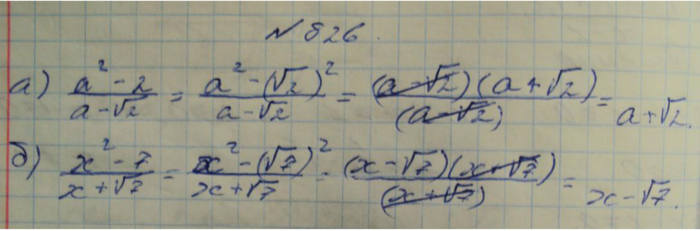 № 826.
а) (a² - 2)/(a - √2) = (a² - (√2)²)/(a - √2) = ((a - √2)(a + √2))/((a - √2)) = a + √2.
б) (x² - 7)/(x + √7) = (x² - (√7)²)/(x + √7) = ((x - √7)(x + √7))/((x + √7)) = x - √7.